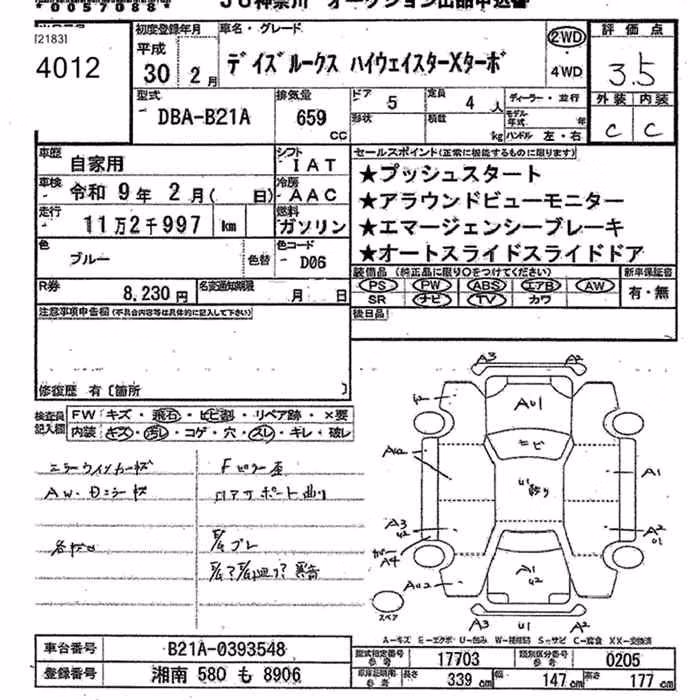 JU神奈川 オークション出品申込書
[2183]
4012
初度登録年月
平成 30年 2月
車名・グレード
デイズルークス ハイウェイスターXターボ
2WD
・
4WD
評価点
3.5
外装 内装
C C
型式
DBA-B21A
排気量
659 CC
ドア 5
定員 4人
形状
積載 kg
ディーラー・並行
モデル年式 年
ハンドル 左・右
車歴 自家用
シフト IAT
車検 令和 9年 2月( 日)
冷房 AAC
走行 11万2千997 km
燃料 ガソリン
色 ブルー 色替
色コード D06
R券 8,230円
名変通知期限 月 日
セールスポイント(正常に機能するものに限ります)
★プッシュスタート
★アラウンドビューモニター
★エマージェンシーブレーキ
★オートスライドスライドドア
装備品 (純正品に限り○をつけてください)
新車保証書
PS PW ABS エアB AW
有・無
SR ナビ TV カワ
後日品
注意事項申告欄(不具合内容等は具体的に記入して下さい)
修復歴 有〔箇所 〕
検査員記入欄
FW キズ・飛石・ヒビ割・リペア跡・×要
内装 キズ・汚レ・コゲ・穴・スレ・キレ・破レ
ミラーウインカーキズ
Fピラー歪
AW・
リアサポート曲り
A3 A2
A01
ヒビ
A1
A3
U2
A2
A4
A1
U2
A3 U1 A2
スペア
A−キズ E−エクボ U−凹み W−補修跡 S−サビ C−腐食 XX−交換済
車台番号 B21A-0393548
登録番号 湘南 580 も 8906
型式指定番号 参考 17703
類別区分番号 参考 0205
車庫証明用 参考 長さ 339 cm 幅 147 cm 高さ 177 cm